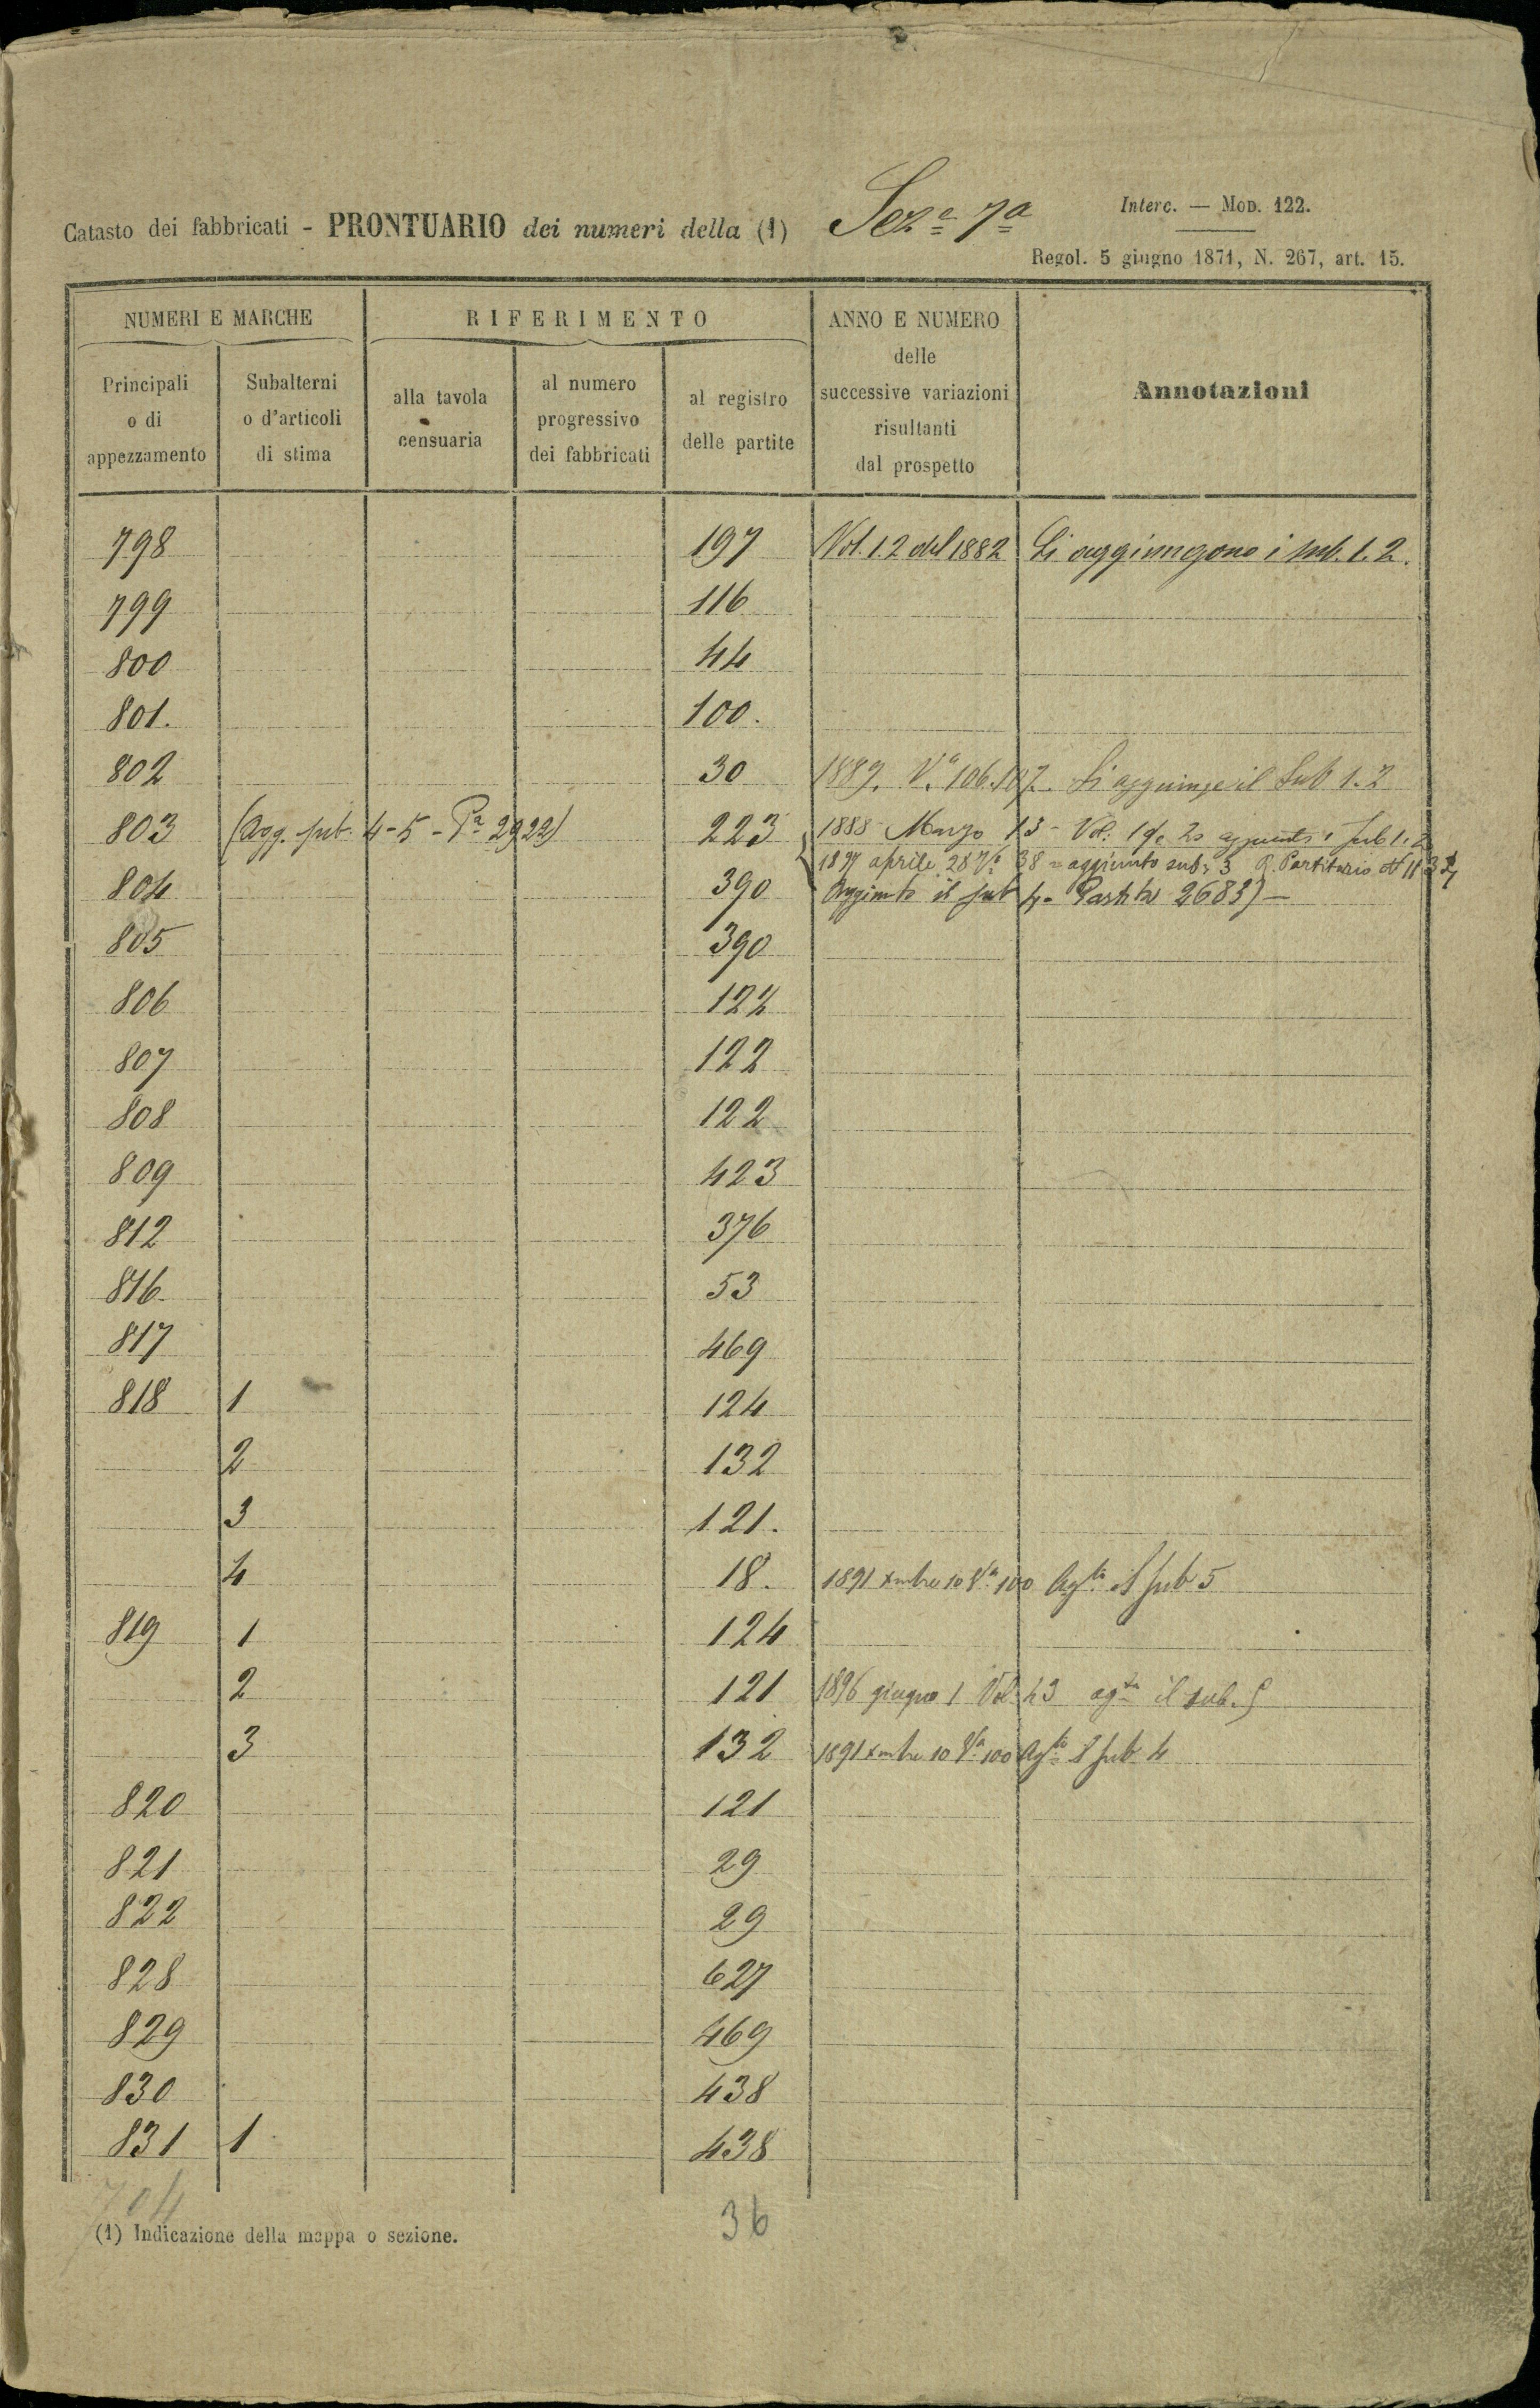 Catasto dei fabbricati - PRONTUARIO dei numeri della (1) Sezᵉ 7ª
Interc. — Mod. 122.
Regol. 5 giugno 1871, N. 267, art. 15.
NUMERI E MARCHE
RIFERIMENTO
ANNO E NUMERO
delle
successive variazioni
risultanti
dal prospetto
Annotazioni
Principali
o di
appezzamento
Subalterni
o d'articoli
di stima
alla tavola
censuaria
al numero
progressivo
dei fabbricati
al registro
delle partite
798 197 Vol. 12 del 1882 Si aggiungono i sub. 1. 2.
799 116
800 44
801. 100.
802 30 1889. Vª 106.107. Si aggiunge il Sub 1. 2
803 (Agg. sub. 4-5 - Pª 2922) 223 1888 Marzo 13 - Vol: 19 e 20 aggiunti i sub 1. 2
1897 aprile 28 Vª 38 = aggiunto sub: 3 R. Partitario
804 390 Aggiunto il sub 4 - Partita 2683) —
805 390
806 122
807 122
808 122
809 423
812 376
816 53
817 469
818 1 124
2 132
3 121.
4 18. 1891 Xmbre 10 Vª 100 Agᵗᵒ il sub 5
819 1 124
2 121 1896 giugno 1 Vol. 43 agᵗᵒ il sub. 5
3 132 1891 Xmbre 10 Vª 100 Agᵗᵒ il sub 4
820 121
821 29
822 29
828 627
829 469
830 438
831 1 438
704
36
(1) Indicazione della mappa o sezione.